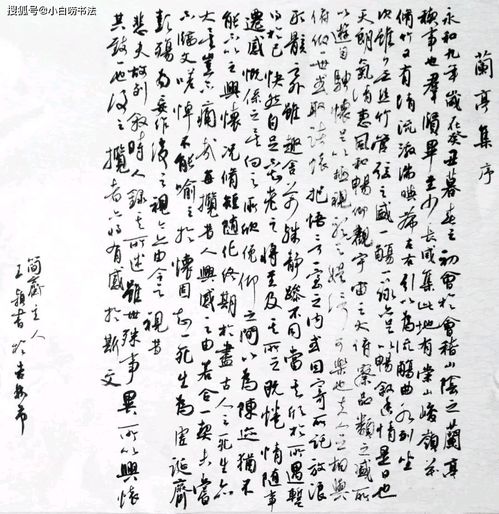 搜狐号@小白唠书法
蘭亭集序
永和九年歲在癸丑暮春之初會於會稽山陰之蘭亭
稧事也群賢畢至少長咸集此地有崇山峻嶺茂林
脩竹又有清流激湍映帶左右引以為流觴曲水列坐
其次雖無絲竹管弦之盛一觴一詠亦足以暢敘幽情是日也
天朗氣清惠風和暢仰觀宇宙之大俯察品類之盛所
以遊目騁懷足以極視聽之娛信可樂也夫人之相與
俯仰一世或取諸懷抱悟言一室之內或因寄所託放浪
形骸之外雖趣舍萬殊靜躁不同當其欣於所遇暫
得於己快然自足不知老之將至及其所之既惓情隨事
遷感慨係之矣向之所欣俛仰之間以為陳迹猶不
能不以之興懷況脩短隨化終期於盡古人云死生亦
大矣豈不痛哉每攬昔人興感之由若合一契未嘗
不臨文嗟悼不能喻之於懷固知一死生為虛誕齊
彭殤為妄作後之視今亦由今之視昔
悲夫故列敘時人錄其所述雖世殊事異所以興懷
其致一也後之攬者亦將有感於斯文
簡齋主人
王穎書於